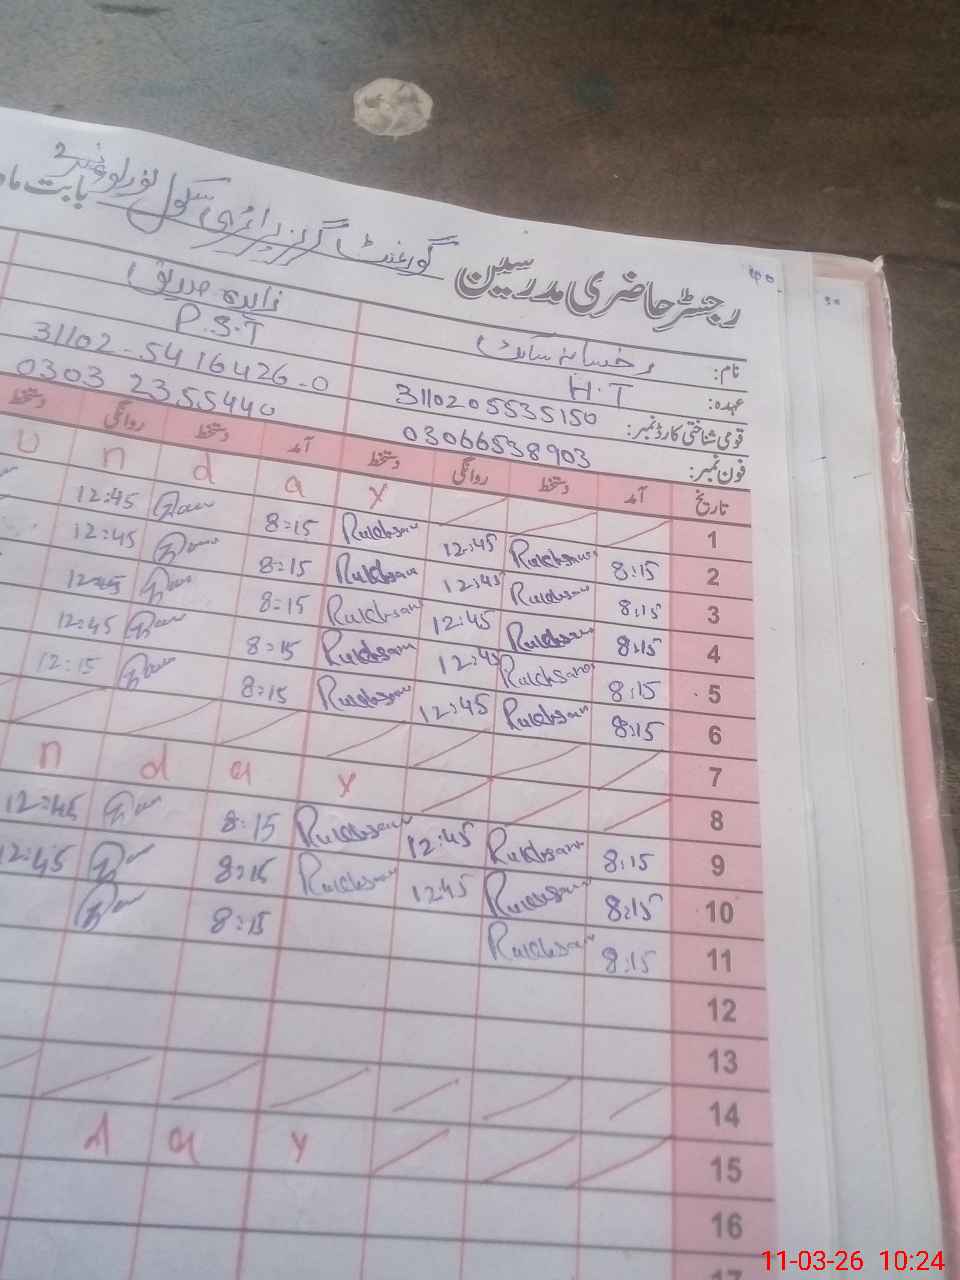 رجسٹر حاضری مدرسین گورنمنٹ گرلز پرائمری سکول نورپور نمبر 2 بابت ماہ
نام: رخسانہ زاہدہ صدیق
عہدہ: H.T P.S.T
قومی شناختی کارڈ نمبر: 3110205535150 31102-5416426-0
فون نمبر: 03066538903 0303 2355440
تاریخ آمد دستخط روانگی دستخط آمد دستخط روانگی دستخط
1 y a d n u
2 8:15 Rukhsana 12:45 Rukhsana 8:15 12:45
3 8:15 Rukhsana 12:45 Rukhsana 8:15 12:45
4 8:15 Rukhsana 12:45 Rukhsana 8:15 12:45
5 8:15 Rukhsana 12:45 Rukhsana 8:15 12:45
6 8:15 Rukhsana 12:45 Rukhsana 8:15 12:15
7
8 y a d n
9 8:15 Rukhsana 12:45 Rukhsana 8:15 12:45
10 8:15 Rukhsana 1245 Rukhsana 8:15 12:45
11 8:15 Rukhsana 8:15
12
13
14
15 y a d
16
17
11-03-26 10:24